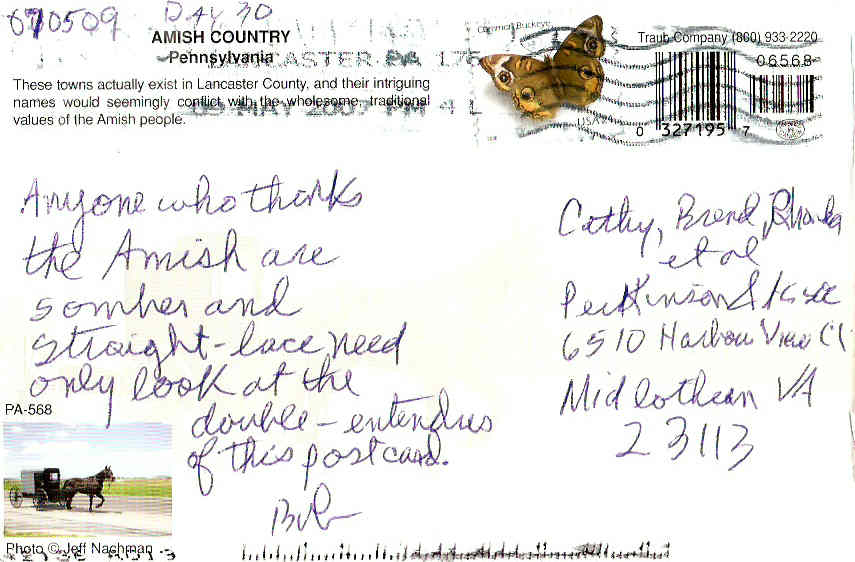 070509 DAY 30
AMISH COUNTRY
Pennsylvania
LANCASTER PA 175
09 MAY 2007 PM 4 L
These towns actually exist in Lancaster County, and their intriguing
names would seemingly conflict with the wholesome, traditional
values of the Amish people.
Common Buckeye
USA
Traub Company (800) 933-2220
06568
0 327195 7
Anyone who thinks
the Amish are
somber and
straight-lace need
only look at the
double-entendres
of this postcard.
Bob
Cathy, Brend, Rhonda
et al
Perkinson & Assc
6510 Harbour View Ct
Midlothian VA
23113
PA-568
Photo © Jeff Nachman